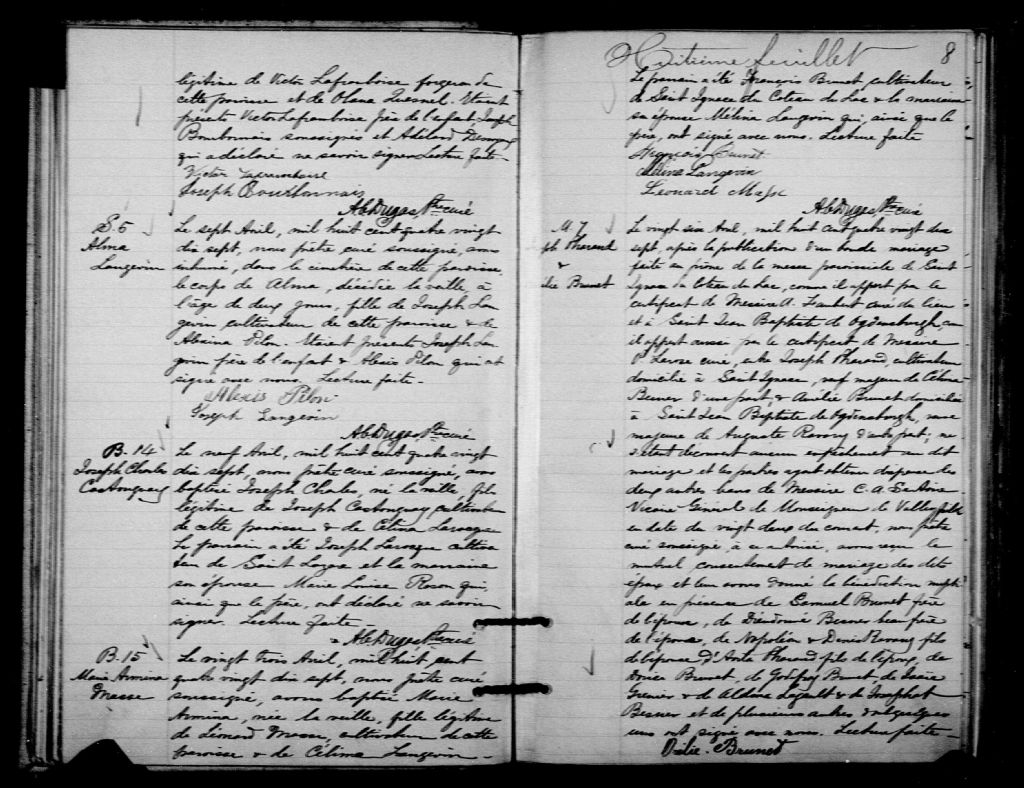 légitime de Victor Laframboise forgeron de
cette paroisse et de Olana Quesnel. Etaient
présents Victor Laframboise père de l'enfant Joseph
Bourbonnais soussignés et Adélard
qui a déclaré ne savoir signer Lecture faite-
Victor Laframboise
Joseph Bourbonnais
Ab Dugas Ptre curé
S. 5
Alma
Langevin
Le sept Avril, mil huit cent quatre vingt
dix sept, nous prêtre curé soussigné, avons
inhumé, dans le cimetière de cette paroisse,
le corps de Alma, décédée la veille, à
l'âge de deux jours, fille de Joseph Lan
gevin cultivateur de cette paroisse & de
Alexina Pilon. Etaient présents Joseph Lan
gevin père de l'enfant & Alexis Pilon qui ont
signé avec nous. Lecture faite-
Alexis Pilon
Joseph Langevin
Ab Dugas Ptre curé
B. 14
Joseph Charles
Castonguay
Le neuf Avril, mil huit cent quatre vingt
dix sept, nous prêtre curé soussigné, avons
baptisé Joseph Charles, né la veille, fils
légitime de Joseph Castonguay cultivateur
de cette paroisse & de Célina Larocque
Le parrain a été Joseph Larocque cultiva
teur de Saint Lazare et la marraine
son épouse Marie Louise qui,
ainsi que le père, ont déclaré ne savoir
signer. Lecture faite-
Ab Dugas Ptre curé
B. 15
Marie Armina
Masse
Le vingt trois Avril, mil huit cent
quatre vingt dix sept, nous prêtre curé
soussigné, avons baptisé Marie
Armina, née la veille, fille légitime
de Léonard Masse, cultivateur de cette
paroisse & de Célima Langevin-
Huitième feuillet 8
Le parrain a été François Brunet cultivateur
de Saint Ignace du Coteau du Lac & la marraine
son épouse Mélina Langevin qui, ainsi que le
père, ont signé avec nous. Lecture faite
François Brunet
Mélina Langevin
Léonard Masse
Ab Dugas Ptre curé
M. 7
ph Pherand
&
lie Brunet
Le vingt six Avril, mil huit cent quatre vingt dix
sept, après la publication d'un ban de mariage
faite au prône de la messe paroissiale de Saint
Ignace du Coteau du Lac, comme il appert par le
certificat de Messire A. curé du lieu
et à Saint Jean Baptiste de Ogdensburgh, comme
il appert aussi par le certificat de Messire
P. curé, entre Joseph Pherand, cultivateur
domicilié à Saint Ignace, veuf majeur de Célina
Besner d'une part, & Aurélie Brunet domiciliée
à Saint Jean Baptiste de Ogdensburgh, veuve
majeure de Auguste d'autre part; ne
s'étant découvert aucun empêchement au dit
mariage et les parties ayant obtenu dispense des
deux autres bans de Messire C. A.
Vicaire Général de Monseigneur de Valleyfield
en date du vingt deux du courant, nous prêtre
curé soussigné, à ce autorisé, avons reçu le
mutuel consentement de mariage des dits
époux et leur avons donné la bénédiction nupti
ale en présence de Samuel Brunet frère
de l'épouse, de Dieudonné Besner beau frère
de l'époux, de Napoléon & Denis fils
de l'épouse d' Pherand fils de l'époux, de
Brunet, de Godfroy Brunet, de
& de Aldéna Legault & de Josaphat
Besner et de plusieurs autres dont quelques
uns ont signé avec nous. Lecture faite-
Odile Brunet